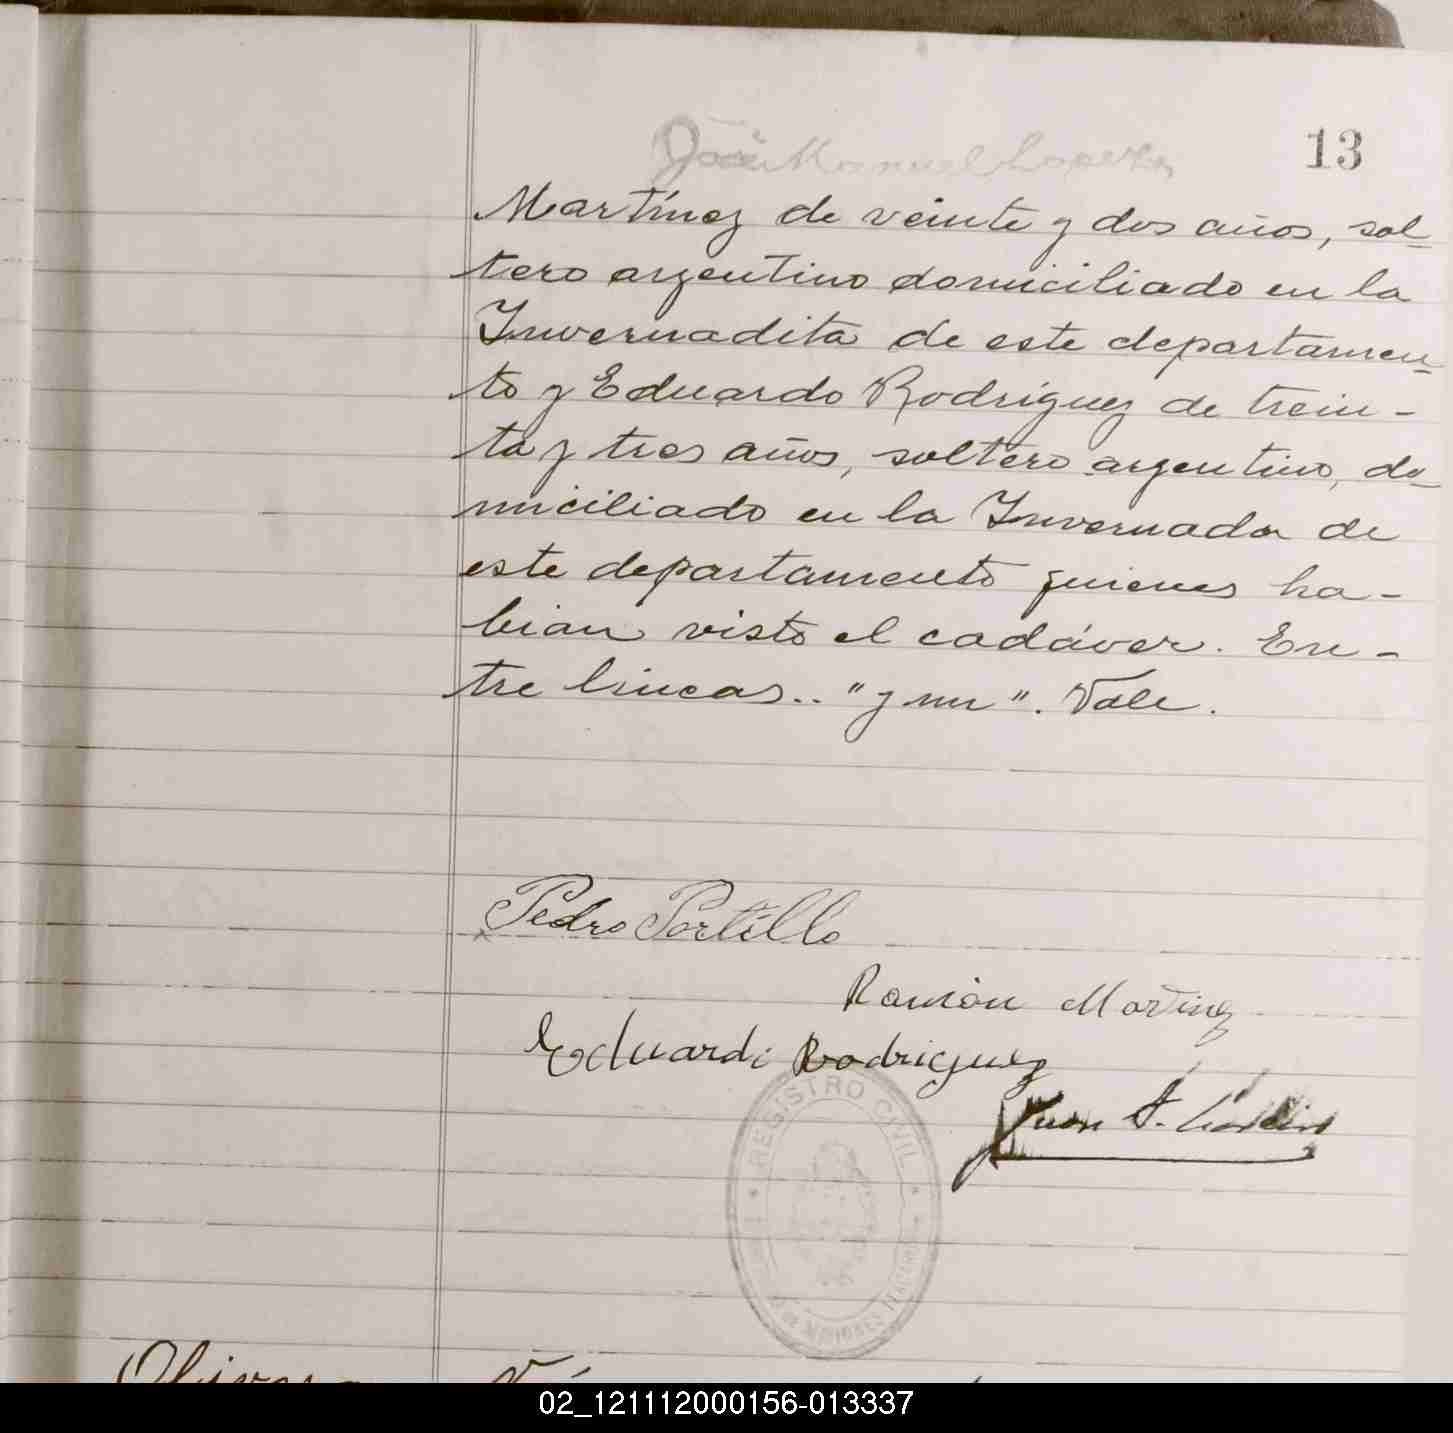 13
José Manuel Lopez
Martínez de veinte y dos años, sol-
tero argentino domiciliado en la
Invernadita de este departamen-
to y Eduardo Rodríguez de trein-
ta y tres años, soltero argentino, do-
miciliado en la Invernada de
este departamento quienes ha-
bian visto el cadáver. En-
tre lineas.. "y un". Vale.
Pedro Portillo
Ramón Martinez
Eduardo Rodriguez
Juan A.
REGISTRO CIVIL
MISIONES
Olivera
02_121112000156-013337